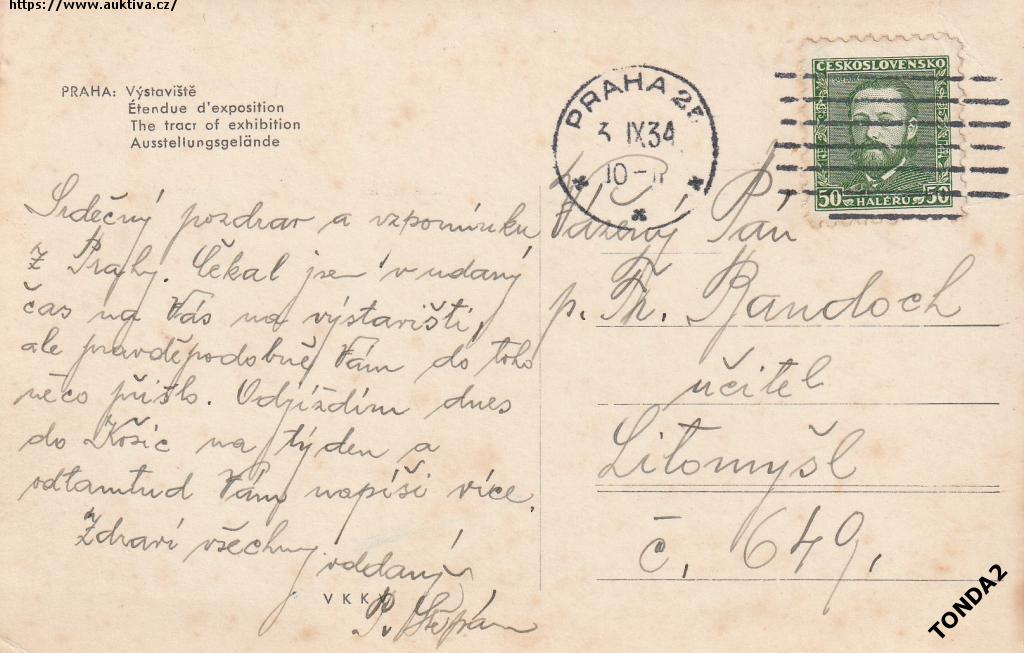 https://www.auktiva.cz/
PRAHA: Výstaviště
Étendue d'exposition
The tract of exhibition
Ausstellungsgelände
PRAHA 25
3 IX 34
10-11
ČESKOSLOVENSKO
50 HALÉŘŮ 50
Srdečný pozdrav a vzpomínku
z Prahy. Čekal jsem v udaný
čas na Vás na výstavišti,
ale pravděpodobně Vám do toho
něco přišlo. Odjíždím dnes
do Košic na týden a
odtamtud Vám napíši více.
Zdraví všechny oddaný
P. Štěpán
VKK
Vážený Pán
p. Th. Bandoch
učitel
Litomyšl
č. 649.
TONDA2